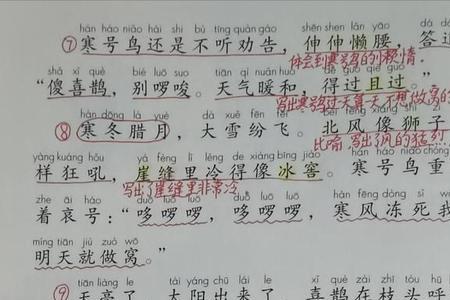 hán háo niǎo hái shì bù tīng quàn gào shēn shen lǎn yāo dá
⑦寒号鸟还是不听劝告，伸伸懒腰，答
体会到寒号鸟的
shǎ xǐ què bié luō suo tiān qì nuǎn
“傻喜鹊，别啰唆。天气暖和，得过且过。”
写出寒号鸟过一天算一天，不想做窝的
hán dōng là yuè dà xuě fēn fēi běi fēng xiàng shī zi
⑧寒冬腊月，大雪纷飞。北风像狮子
比喻 写出了风的猛烈
yàng kuáng hǒu yá fèng lǐ lěng de xiàng bīng jiào hán háo niǎo chóng
样狂吼，崖缝里冷得像冰窖。寒号鸟重
写出了崖缝里非常冷
zhe āi háo duō luō luō duō luō luō hán fēng dòng sǐ wǒ
着哀号：“哆啰啰，哆啰啰，寒风冻死我
míng tiān jiù zuò wō
明天就做窝。”
tiān liàng le tài yáng chū lái le xǐ què zài zhī tóu hū
⑨天亮了，太阳出来了，喜鹊在枝头呼